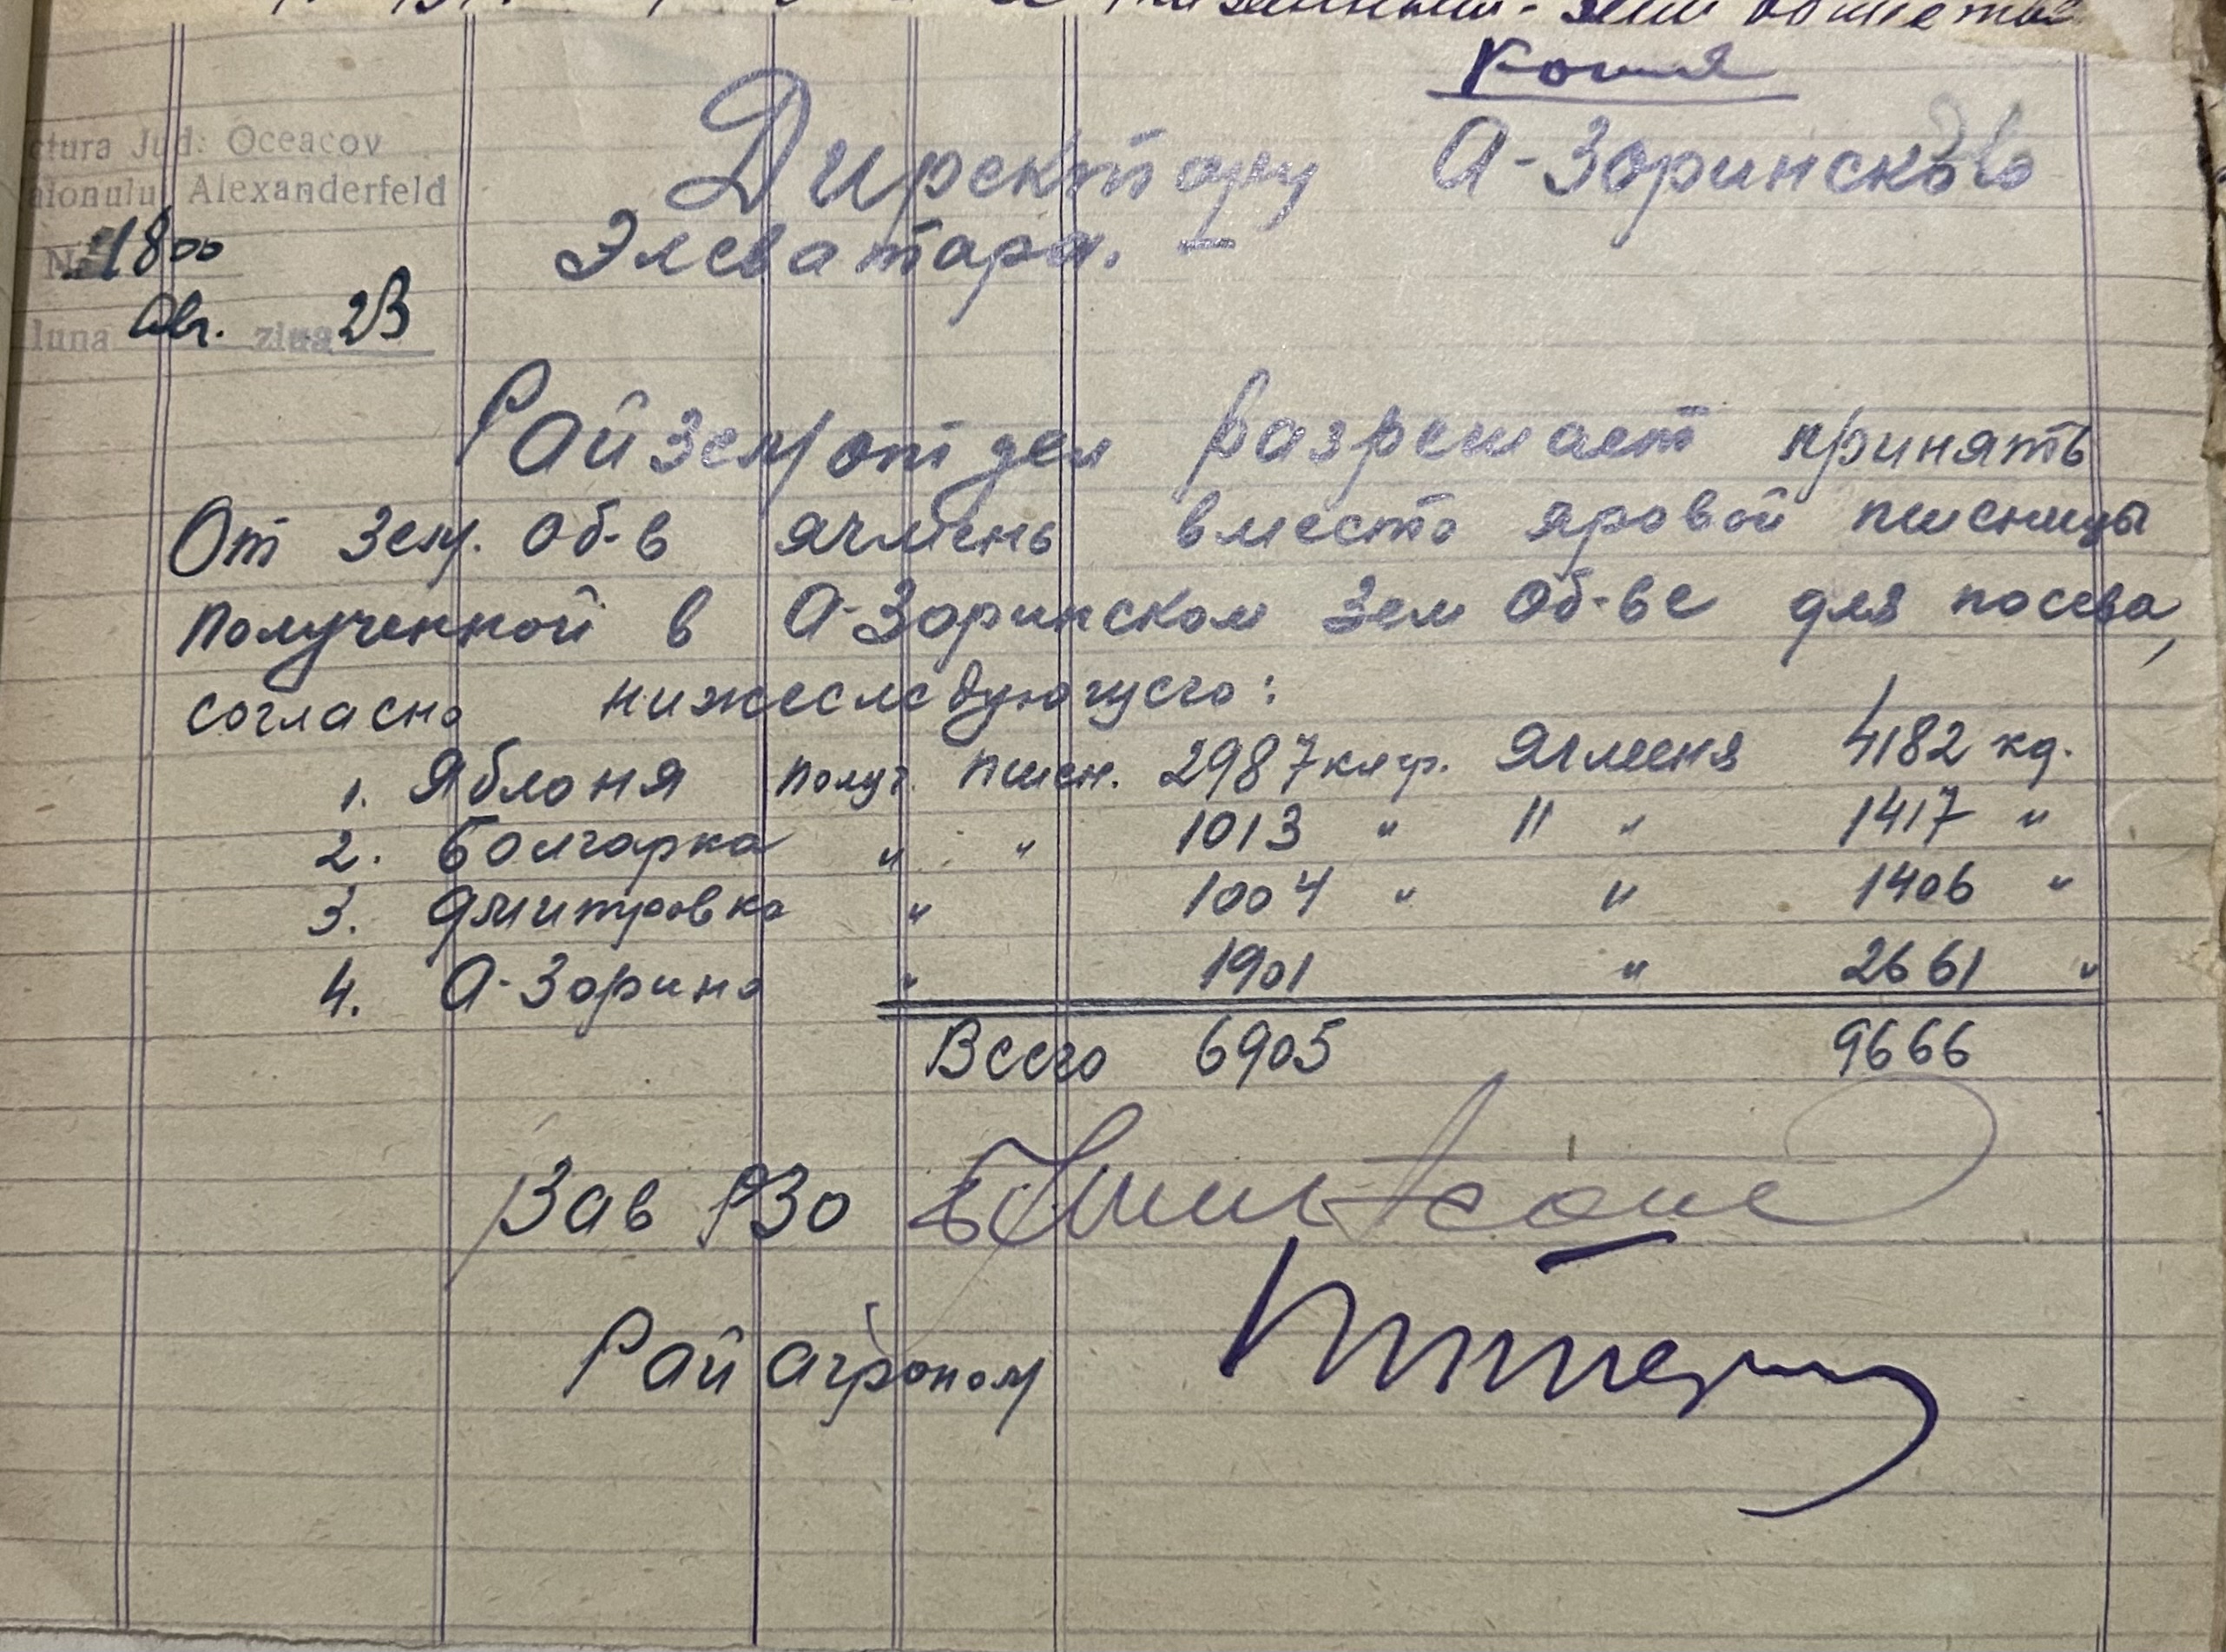 копия
ctura Jud: Oceacov
aionului Alexanderfeld
N 1800
luna Avr. ziua 23
Директору А-Зоринского
Элеватара.
Райземотдел разрешает принять
От Зем. Об-в ячмень вместо яровой пшеницы
полученной в А-Зоринском Зем Об-ве для посева,
согласно нижеследующего:
1. Яблоня получ. пшен. 2987 клгр. Ячменя 4182 кг.
2. Болгарка " " 1013 " " " 1417 "
3. Дмитровка " 1004 " " 1406 "
4. А-Зорино " 1901 " 2661 "
Всего 6905 9666
Зав РЗО
Райагроном